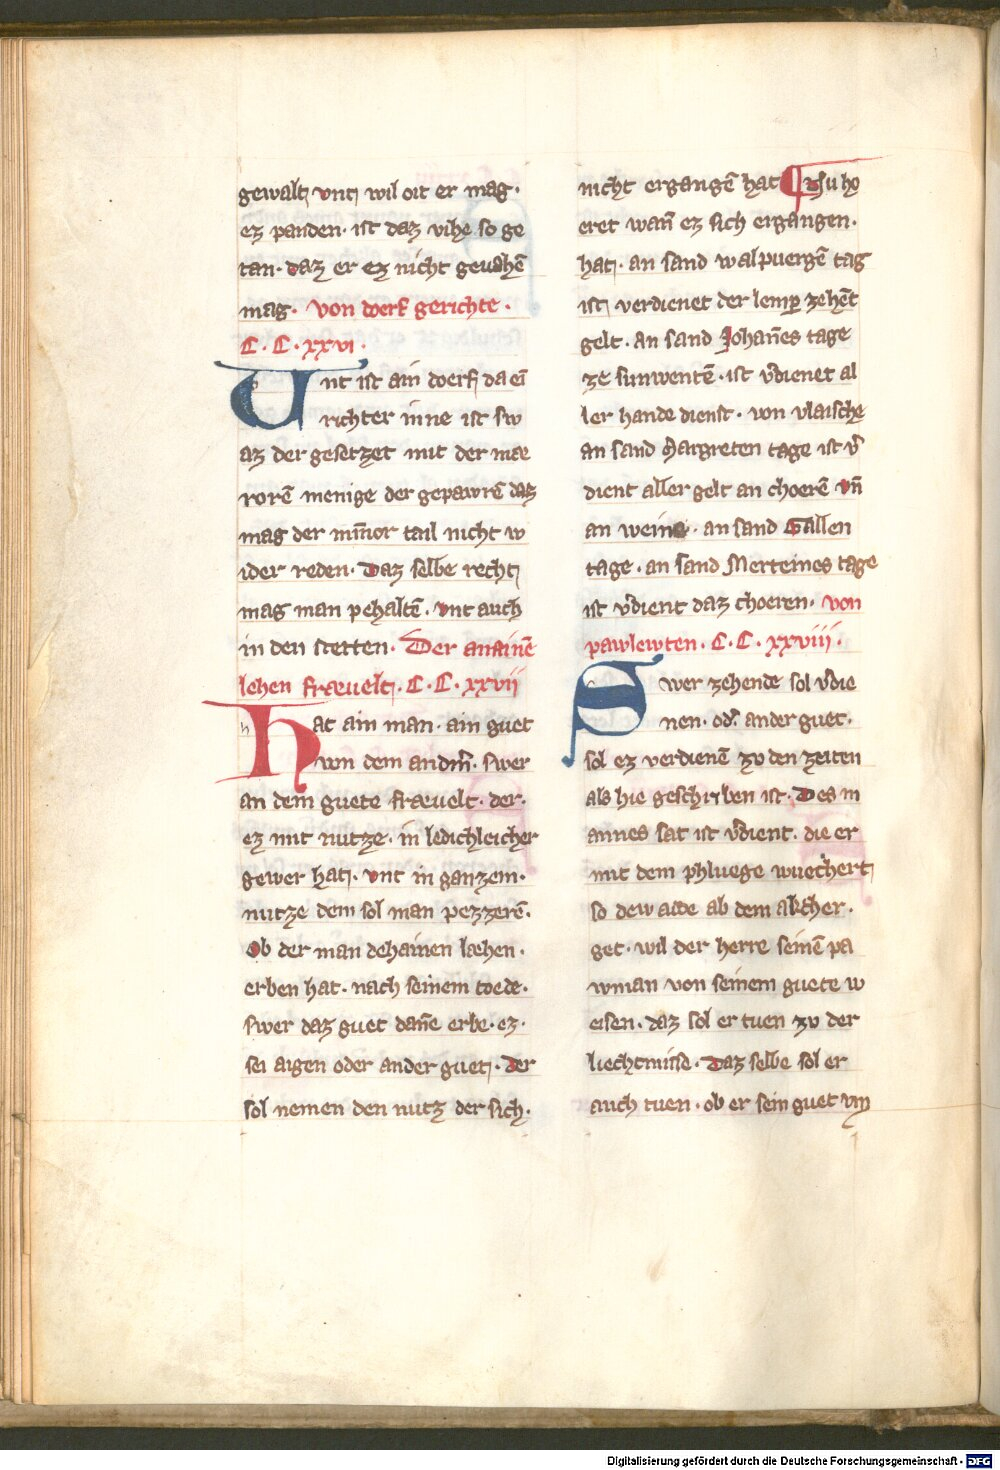 gewalt vnt wil oit er mag·
ez panden· ist daz vihe so ge
tan· daz er ez nicht gevahē
mag· von doerf gerichte·
C·C·xxvi·
Unt ist ain doerf da eī
richter inne ist sw
az der gesetzet mit der mae
rorē menige der gepawrē daz
mag der mīnor tail nicht w
ider reden· Daz selbe recht
mag man pehaltē· vnt auch
in den stetten· Der an ainē
lehen fraeuelt· C·C·xxvii
Hat ain man· ain guet
von dem andm̄· swer
an dem guete fraeuelt· der·
ez mit nutze· in ledichleicher
gewer hat· vnt in ganzem·
nutze dem sol man pezzerē·
Ob der man dehainen laehen·
erben hat· nach seinem toede·
swer daz guet dan̄e erbe· ez·
sei aigen oder ander guet· der
sol nemen den nutz der sich·
nicht ergangē hat ¶ Nu ho
eret wan̄ ez sich ergangen·
hat· an sand walpuergē tag
ist verdienet der lemp̄ zehēt
gelt· an sand Johan̄es tage
ze sunwentē· ist v̄dienet al
ler hande dienst· von vlaische
an sand Margreten tage ist v̄
dient aller gelt an choerē vn̄
an weine· an sand Gallen
tage· an sand Merteines tage
ist v̄dient daz choeren· von
pawlewten· C·C·xxviii·
Swer zehende sol v̄die
nen· od̄ ander guet·
sol ez verdienē zv den zeiten
als hie geschriben ist· Des m
annes sat ist v̄dient· die er
mit dem phluege wuechert
so dew aide ab dem akcher·
get· wil der herre seinē pa
wman von seinem guete w
eisen· daz sol er tuen zv der
liechtmisse· Daz selbe sol er
auch tuen· ob er sein guet vm
Digitalisierung gefördert durch die Deutsche Forschungsgemeinschaft - DFG